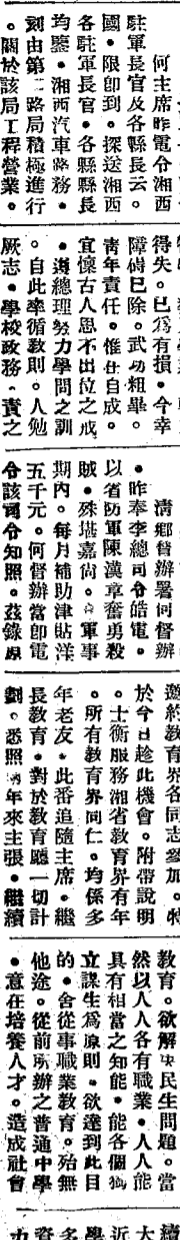 何主席昨電令湘西
駐軍長官及各縣長云。
國●限即到●探送湘西
各駐軍長官●各縣縣長
均鑒●湘西汽車路務●
刻由第二路局積極進行
●關於該局工程營業。
得失。已爲有損●今幸
障碍已除。武功粗畢。
青年責任。惟在自成。
宜懷古人思不出位之戒
●遵總理努力學問之訓
。自此率循教則。人勉
厥志●學校政務●責之
清鄉督辦署何督辦
●昨奉李總司令皓電。
以省防軍陳漢章奮勇殺
賊。殊堪嘉尚。軍事
期內。每月補助津貼洋
五千元。何督辦當即電
令該司令知照。茲錄原
邀約教育界各同志參加。特
於今日趁此機會。附帶說明
。士衡服務湘省教育界有年
。所有教育界同仁。均係多
年老友。此番追隨主席。繼
長教育。對於教育廳一切計
劃。悉照兩年來主張。繼續
教育。欲解決民生問題。當
然以人人各有職業。人人能
具有相當之知能。能各個獨
立謀生爲原則。欲達到此目
的。舍從事職業教育。殆無
他途。從前所辦之普通中學
●意在培養人才。造成社會